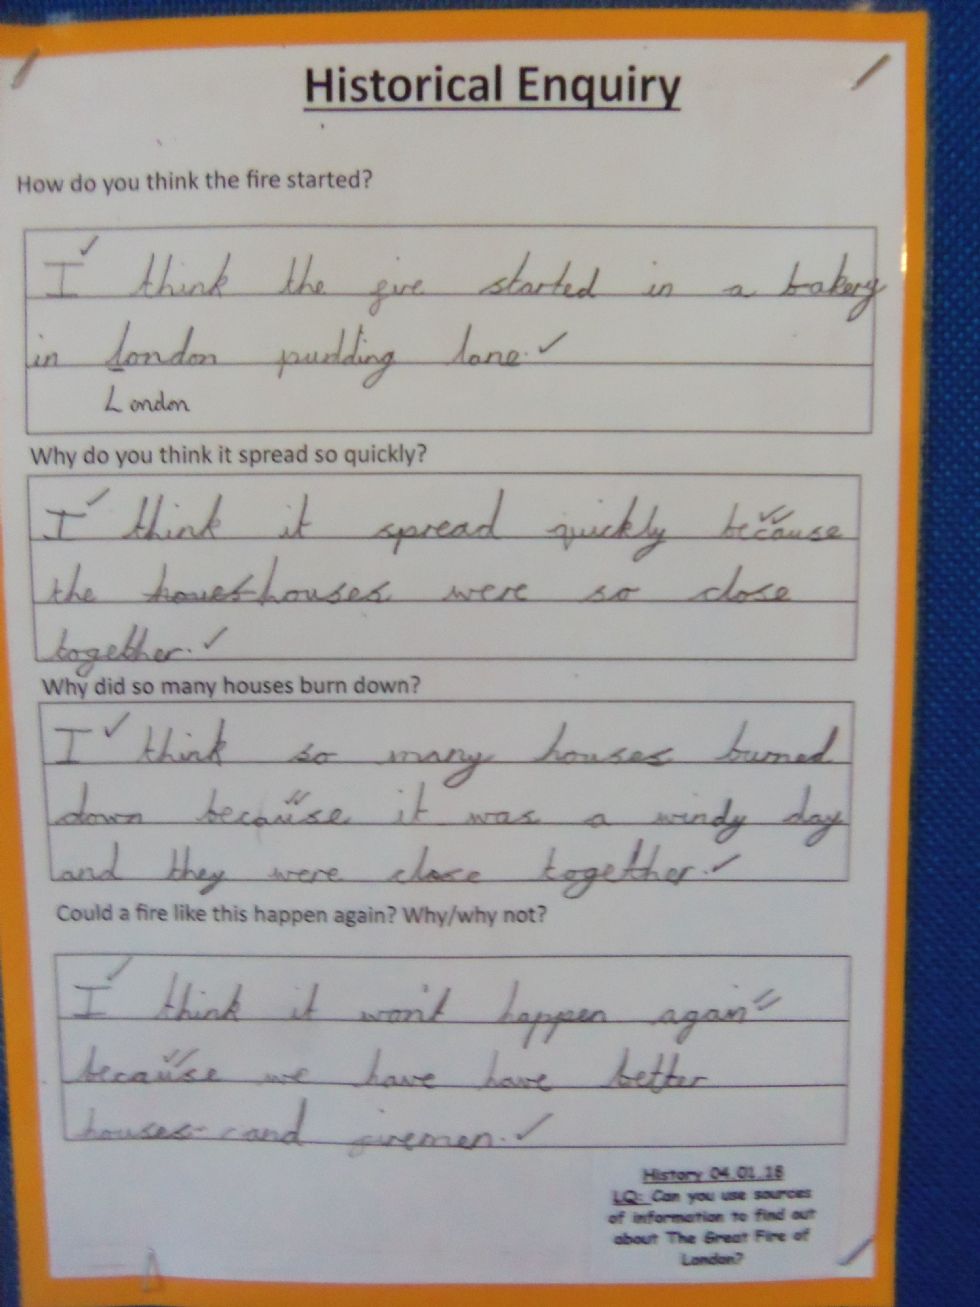 Historical Enquiry
How do you think the fire started?
I think the fire started in a bakery
in london pudding lane.
London
Why do you think it spread so quickly?
I think it spread quickly because
the houes houses were so close
together.
Why did so many houses burn down?
I think so many houses burned
down because it was a windy day
and they were close together.
Could a fire like this happen again? Why/why not?
I think it won't happen again
because we have have better
houses and firemen.
History 04.01.18
LQ: Can you use sources
of information to find out
about The Great Fire of
London?